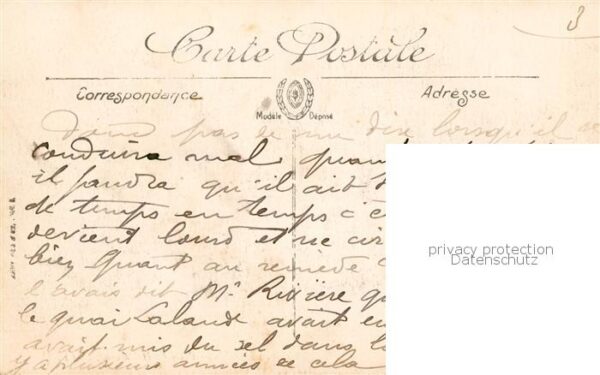 3
Carte Postale
Correspondance
Adresse
Modèle Déposé
Donc pas le me dire lorsqu'il se
conduira mal quan
il faudra qu'il ait
de temps en temps c'e
devient lourd et ne cir
bien Quant au remède
l'avais dit Mr Rivière qu
le quai Lalande avait eu
avait mis du sel dans l
y a plusieurs années et cela
privacy protection
Datenschutz